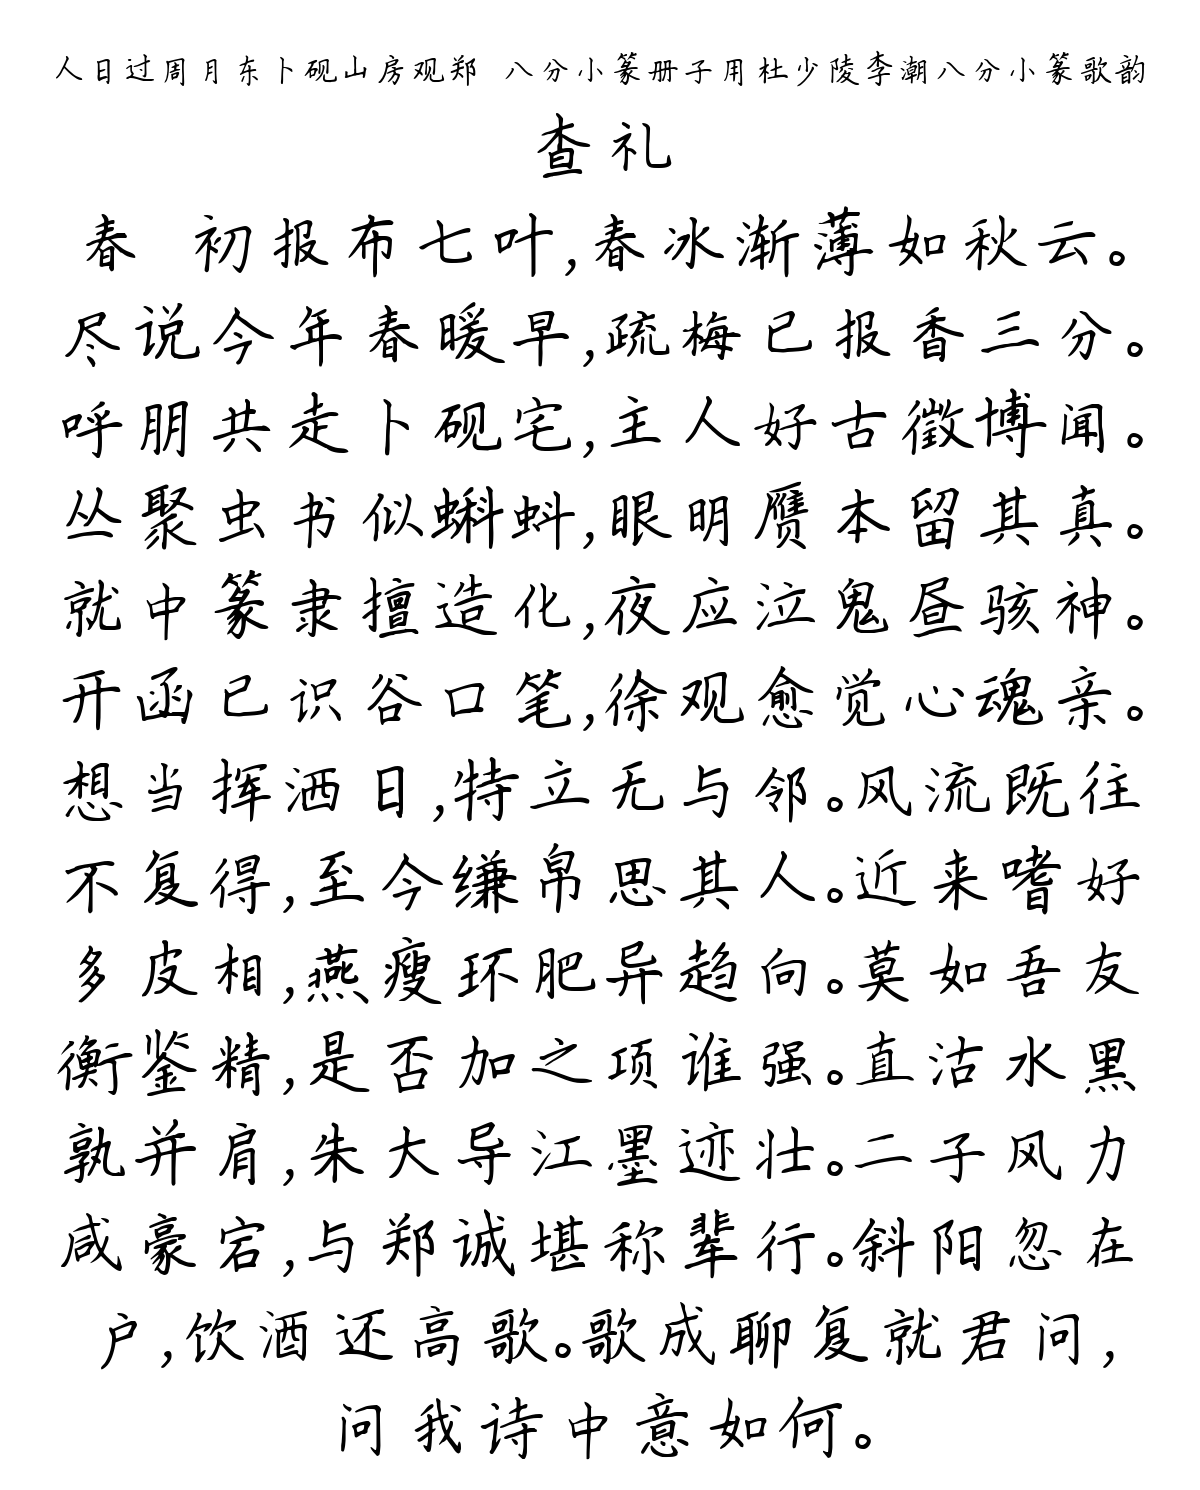 人日过周月东卜砚山房观郑 八分小篆册子用杜少陵李潮八分小篆歌韵
查礼
春 初报布七叶,春冰渐薄如秋云。
尽说今年春暖早,疏梅已报香三分。
呼朋共走卜砚宅,主人好古徵博闻。
丛聚虫书似蝌蚪,眼明赝本留其真。
就中篆隶擅造化,夜应泣鬼昼骇神。
开函已识谷口笔,徐观愈觉心魂亲。
想当挥洒日,特立无与邻。风流既往
不复得,至今缣帛思其人。近来嗜好
多皮相,燕瘦环肥异趋向。莫如吾友
衡鉴精,是否加之项谁强。直沽水黑
孰并肩,朱大导江墨迹壮。二子风力
咸豪宕,与郑诚堪称辈行。斜阳忽在
户,饮酒还高歌。歌成聊复就君问,
问我诗中意如何。